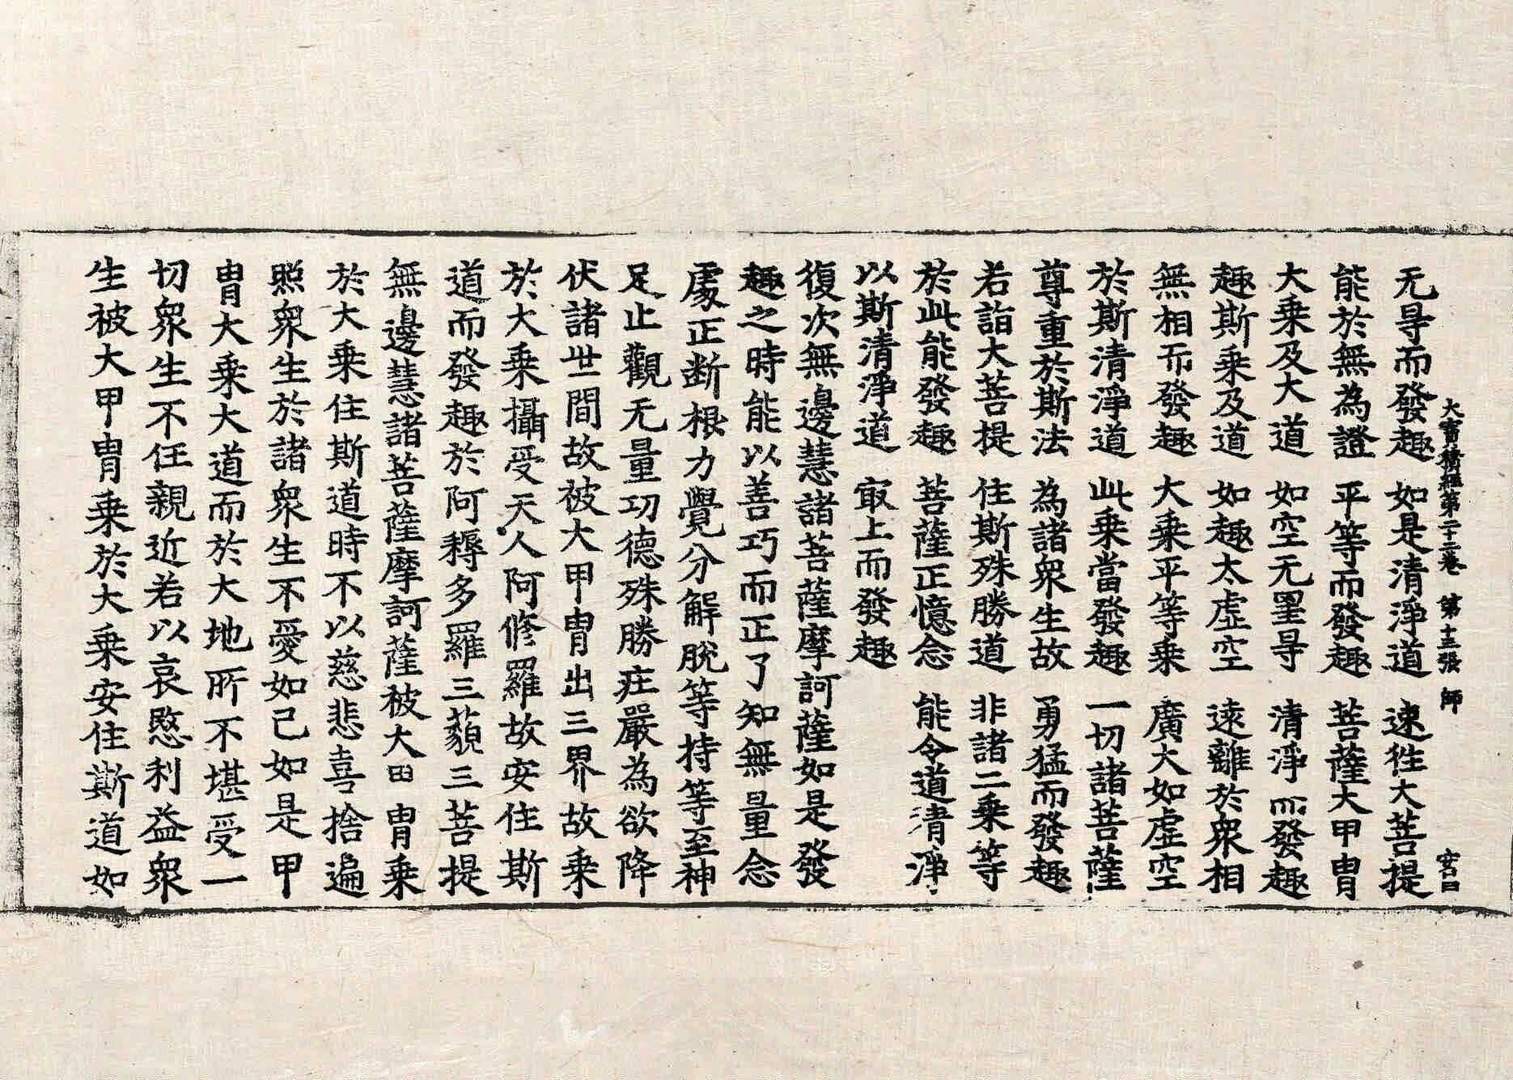 大寶積經第二十三卷 第十三張 師
无㝵而發趣 如是清淨道 速徃大菩提
能於無為證 平等而發趣 菩薩大甲胄
大乗及大道 如空无罣㝵 清淨而發趣
趣斯乗及道 如趣太虛空 遠離於衆相
無相而發趣 大乗平等乗 廣大如虛空
於斯清淨道 此乗當發趣 一切諸菩薩
尊重於斯法 為諸衆生故 勇猛而發趣
若詣大菩提 住斯殊勝道 非諸二乗等
於此能發趣 菩薩正憶念 能令道清淨
以斯清淨道 㝡上而發趣
復次無邊慧諸菩薩摩訶薩如是發
趣之時能以善巧而正了知無量念
處正断根力覺分解脫等持等至神
足止觀无量功德殊勝㽵嚴為欲降
伏諸世間故被大甲胄出三界故乗
於大乗攝受天人阿修羅故安住斯
道而發趣於阿耨多羅三藐三菩提
無邊慧諸菩薩摩訶薩被大甲胄乗
於大乗住斯道時不以慈悲喜捨遍
照衆生於諸衆生不愛如己如是甲
胄大乗大道而於大地所不堪受一
切衆生不任親近若以哀愍利益衆
生被大甲胄乗於大乗安住斯道如